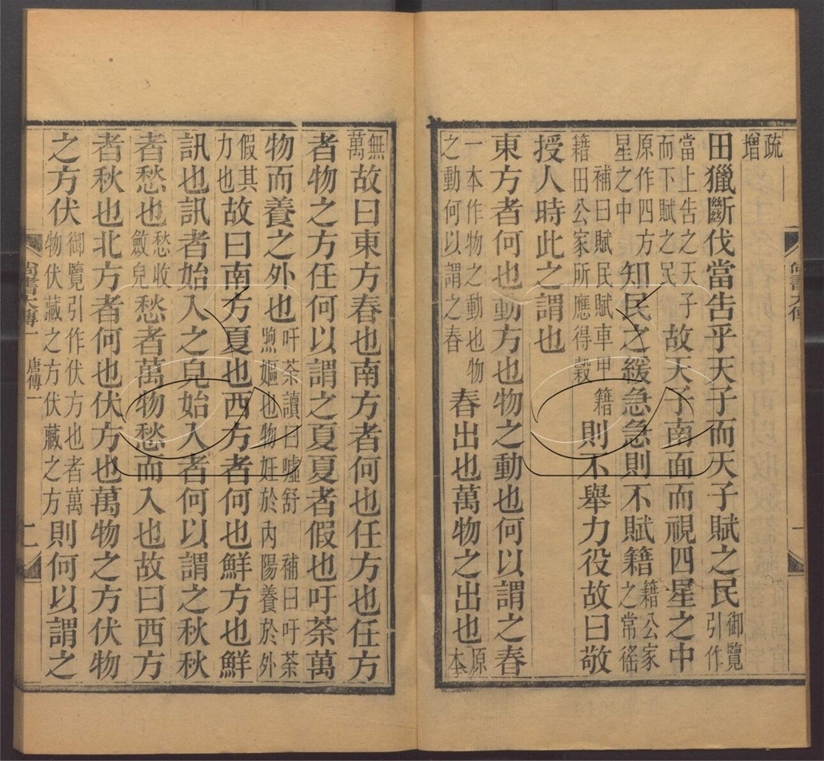 疏增
田獵斷伐當告乎天子而天子賦之民御覽引作
當上告之天子而下賦之民故天子南面而視四星之中
原作四方星之中知民之緩急急則不賦籍籍公家之常徭
補曰賦民賦車甲籍籍田公家所應得穀則不舉力役故曰敬
授人時此之謂也
東方者何也動方也物之動也何以謂之春
一本作物之動也物之動何以謂之春春出也萬物之出也原本
無萬故曰東方春也南方者何也任方也任方
者物之方任何以謂之夏夏者假也吁荼萬
物而養之外也吁荼讀曰噓舒補曰吁荼煦嫗也物妊於內陽養於外
假其力也故曰南方夏也西方者何也鮮方也鮮
訊也訊者始入之皃始入者何以謂之秋秋
者愁也愁收斂皃愁者萬物愁而入也故曰西方
者秋也北方者何也伏方也萬物之方伏物
之方伏御覽引作伏方也者萬物伏藏之方伏藏之方則何以謂之
尚書大傳一 唐傳一 二